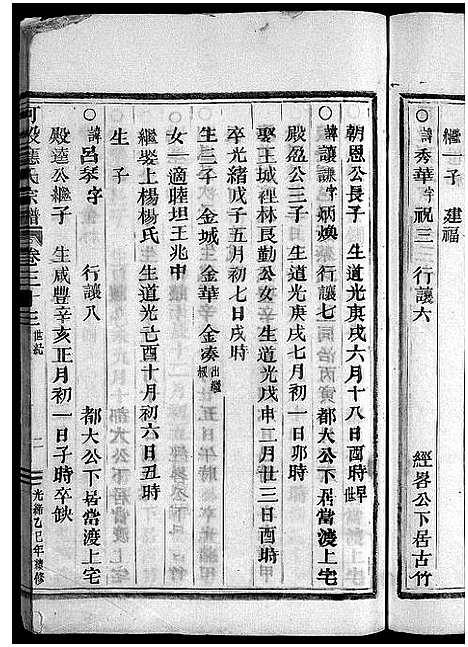 繼一子 建福
○諱秀華字祝三 行讓六 經畧公下居古竹
朝恩公長子 生道光庚戌六月十八日酉時早世
○諱讓謙字炳煥 行讓七 都大公下居當渡上宅
殿盈公三子 生道光庚戌七月初一日卯時
娶王城裡林良勤公女生道光戊申二月廿三日酉時
卒光緒戊子五月初七日戌時
生三子 金城 金華 金湊出繼叔
女一適睦坦王兆申
繼娶上楊楊氏生道光己酉十月初六日丑時
生 子
○諱呂琴字 行讓八 都大公下居當渡上宅
殿達公繼子 生咸豐辛亥正月初一日子時卒缺
可殿應氏宗譜 卷三十三 世紀 二 光緒乙巳年續修